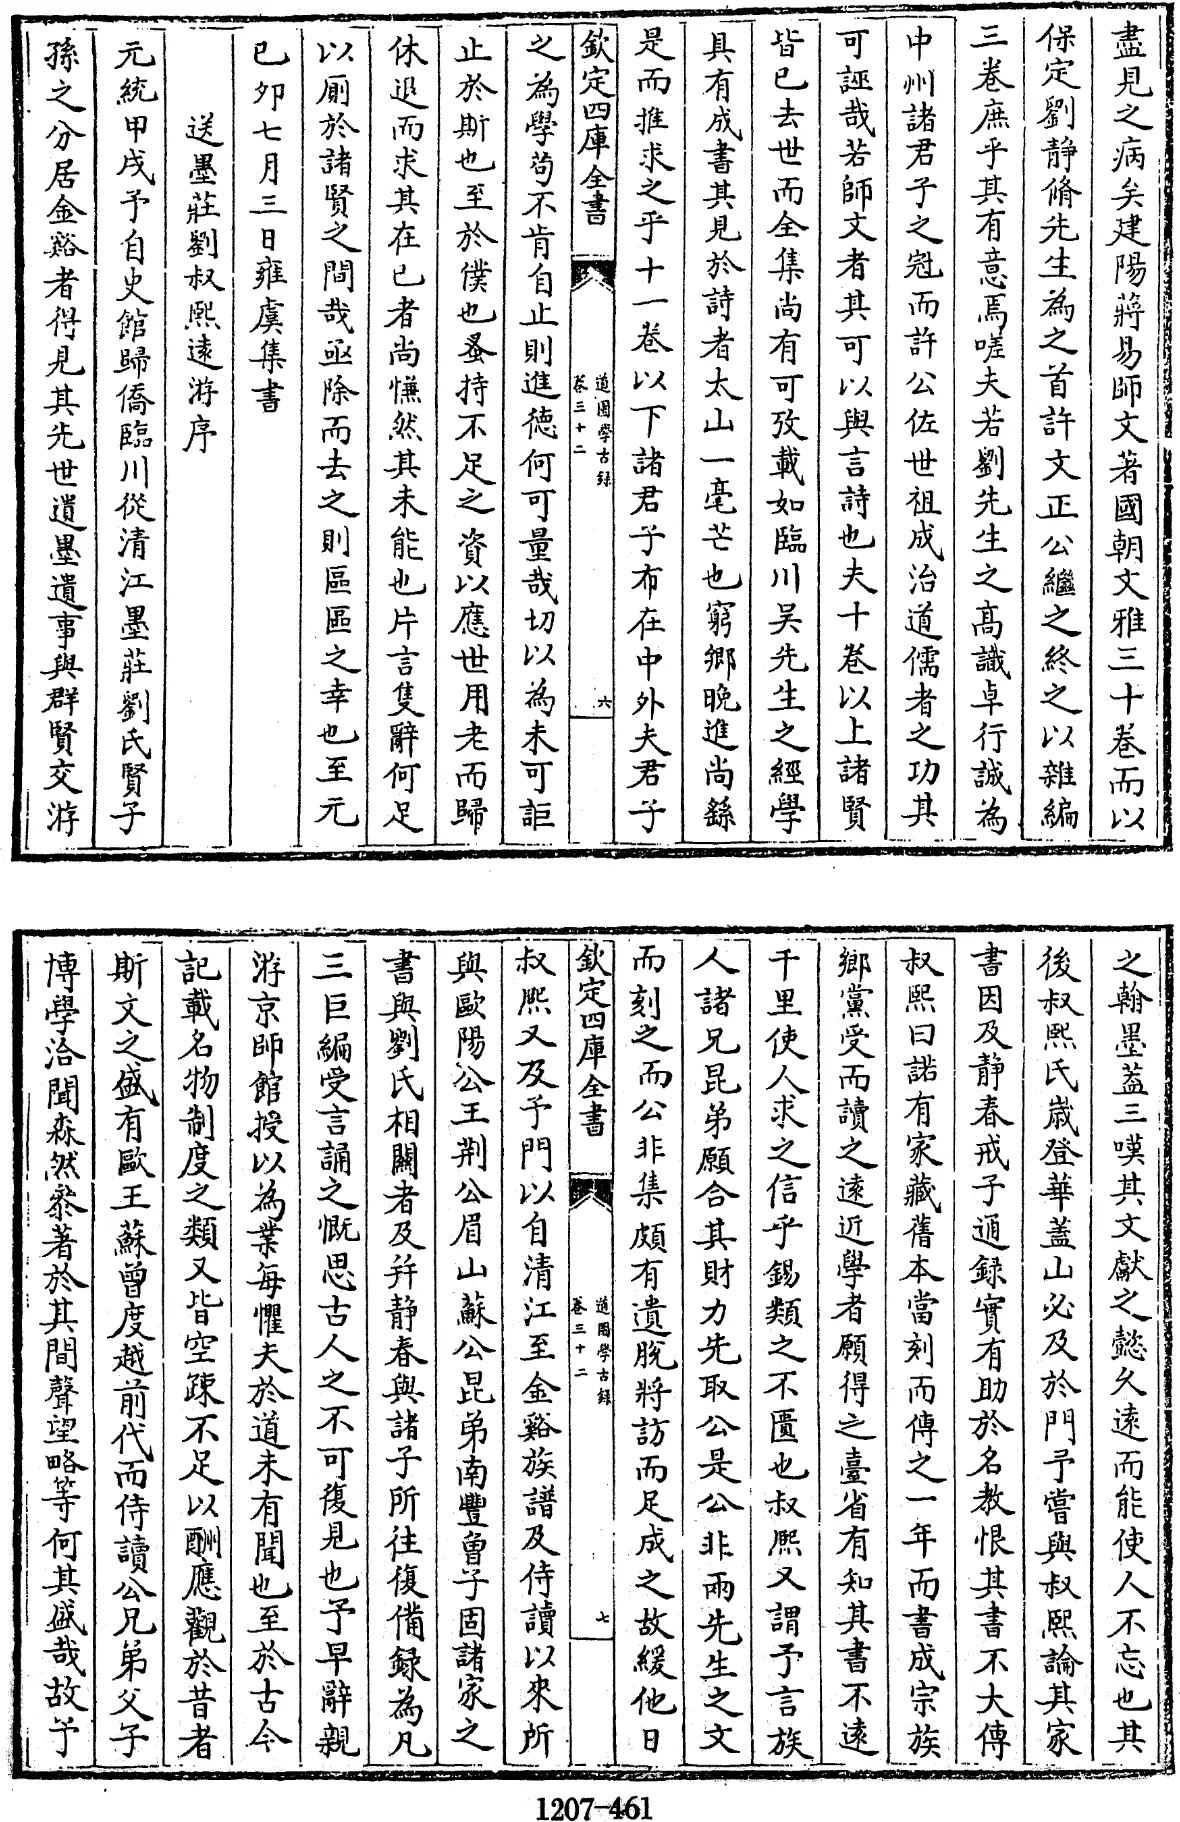 盡見之病矣建陽蔣易師文著國朝文雅三十卷而以
保定劉静脩先生為之首許文正公繼之終之以雜編
三卷庶乎其有意焉嗟夫若劉先生之髙識卓行誠為
中州諸君子之冠而許公佐世祖成治道儒者之功其
可誣哉若師文者其可以與言詩也夫十卷以上諸賢
皆已去世而全集尚有可攷載如臨川吳先生之經學
具有成書其見於詩者太山一毫芒也窮鄉晚進尚繇
是而推求之乎十一卷以下諸君子布在中外夫君子
欽定四庫全書
道園學古録
卷三十二
六
之為學茍不肯自止則進德何可量哉切以為未可詎
止於斯也至於僕也蚤持不足之資以應世用老而歸
休退而求其在已者尚慊然其未能也片言隻辭何足
以厠於諸賢之間哉亟除而去之則區區之幸也至元
已夘七月三日雍虞集書
送墨莊劉叔熙遠游序
元統甲戌予自史館歸僑臨川從清江墨莊劉氏賢子
孫之分居金谿者得見其先世遺墨遺事與群賢交游
之翰墨葢三嘆其文獻之懿久遠而能使人不忘也其
後叔熙氏嵗登華葢山必及於門予嘗與叔熙論其家
書因及静春戒子通録實有助於名教恨其書不大傳
叔熙曰諾有家藏舊本當刻而傳之一年而書成宗族
鄉黨受而讀之遠近學者願得之臺省有知其書不遠
千里使人求之信乎錫類之不匱也叔熙又謂予言族
人諸兄昆弟願合其財力先取公是公非兩先生之文
而刻之而公非集頗有遺脫將訪而足成之故緩他日
欽定四庫全書
道園學古録
卷三十二
七
叔熙又及予門以自清江至金谿族譜及侍讀以來所
與歐陽公王荆公眉山蘇公昆弟南豐曾子固諸家之
書與劉氏相闗者及并静春與諸子所往復備録為凡
三巨編受言誦之慨思古人之不可復見也予早辭親
游京師館授以為業每懼夫於道未有聞也至於古今
記載名物制度之類又皆空疎不足以酬應觀於昔者
斯文之盛有歐王蘇曾度越前代而侍讀公兄弟父子
博學洽聞森然叅著於其間聲望略等何其盛哉故予
1207-461